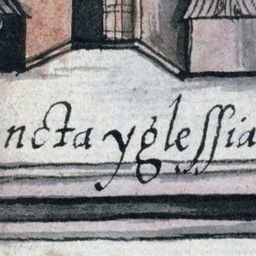 ncta yglessia